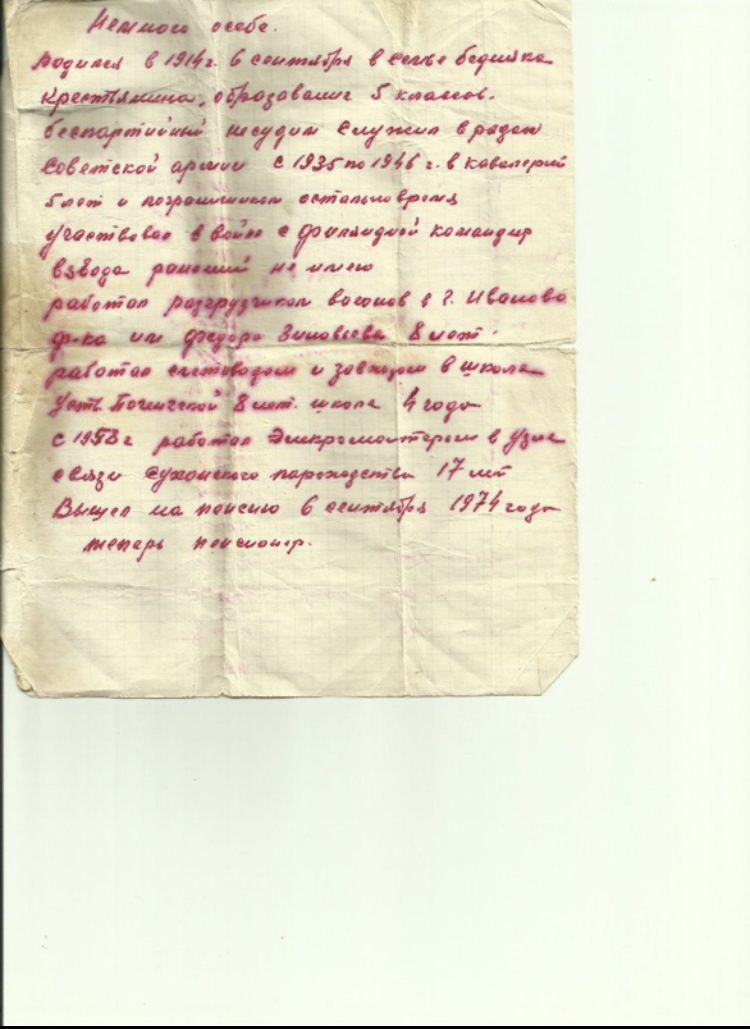 Немного осебе.
родился в 1914г. 6 сентября в семье бедняка
крестьянина, образавание 5 классов.
беспартийный несудим служил в рядах
советской армии с 1935 по 1946 г. в кавалерий
5 лет и пограничником остальное время
участвовал в войне с финляндией командир
взвода ранений не имею
работал разгрузчиком вагонов в г. Иваново
ф-ка им федора Зиновьева 8 лет.
работал счетоводом и завхозом в школе
8 лет. школе 4 года
с 1958г работал в Узле
связи Сухонского пароходства 17 лет
Вышел на пенсию 6 сентября 1974 года
теперь пенсионер.